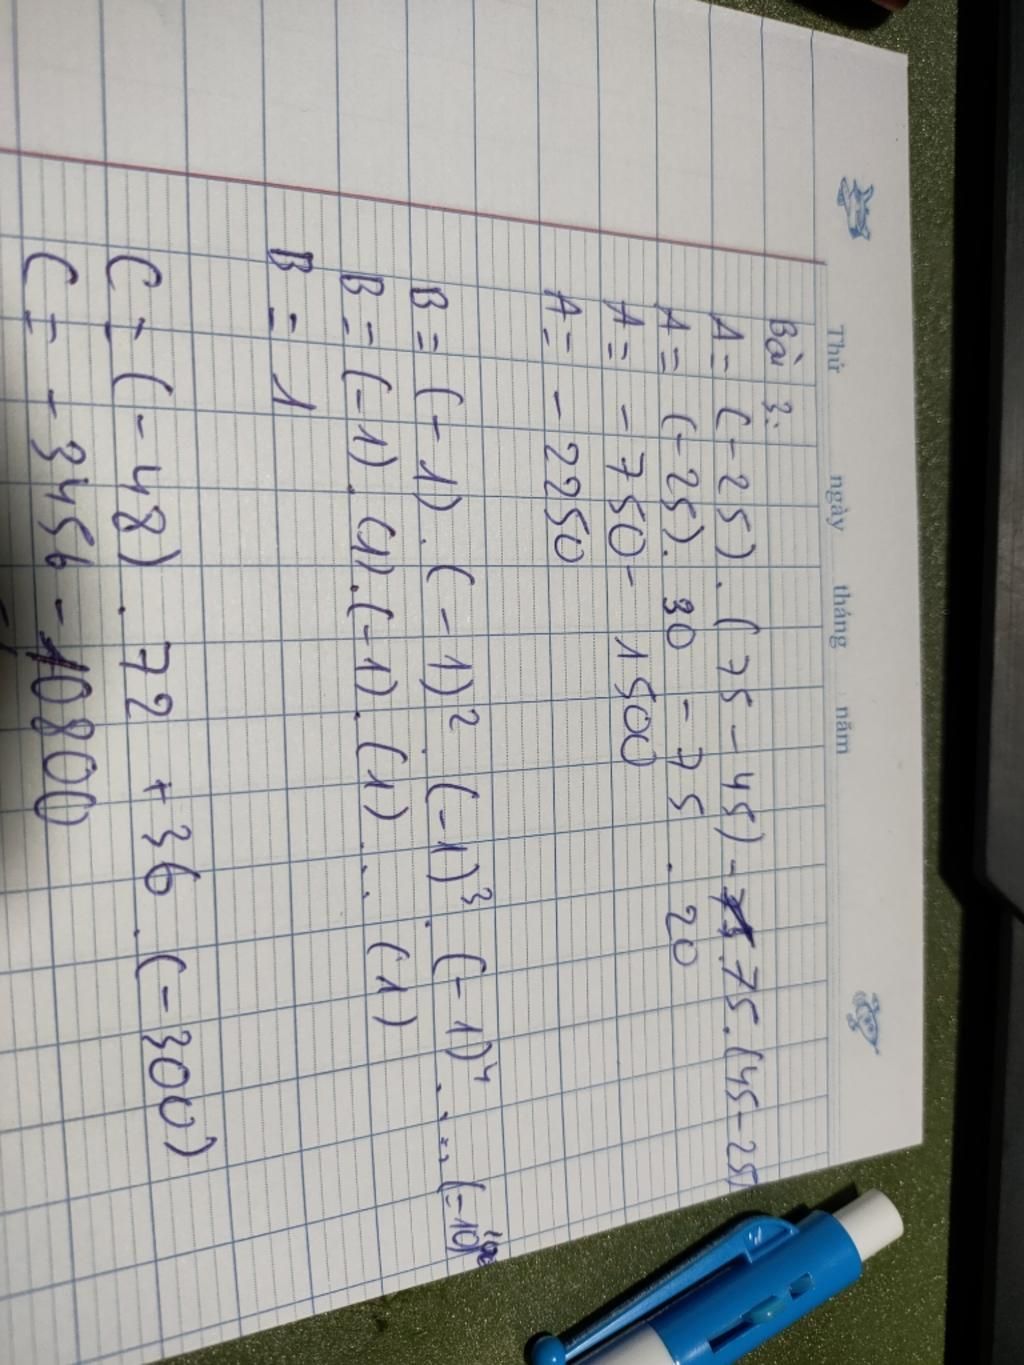 Thứ ngày tháng năm
Bài 3:
A = (-25) . (75 - 45) - 75.(45-25)
A = (-25). 30 - 75 . 20
A = - 750 - 1500
A = - 2250
B = (-1) . (-1)² . (-1)³ . (-1)⁴ . ... (-10)¹⁰⁰
B = (-1) . (1) . (-1) . (1) ... (1)
B = 1
C = (-48) . 72 + 36 . (-300)
C = - 3456 - 10800